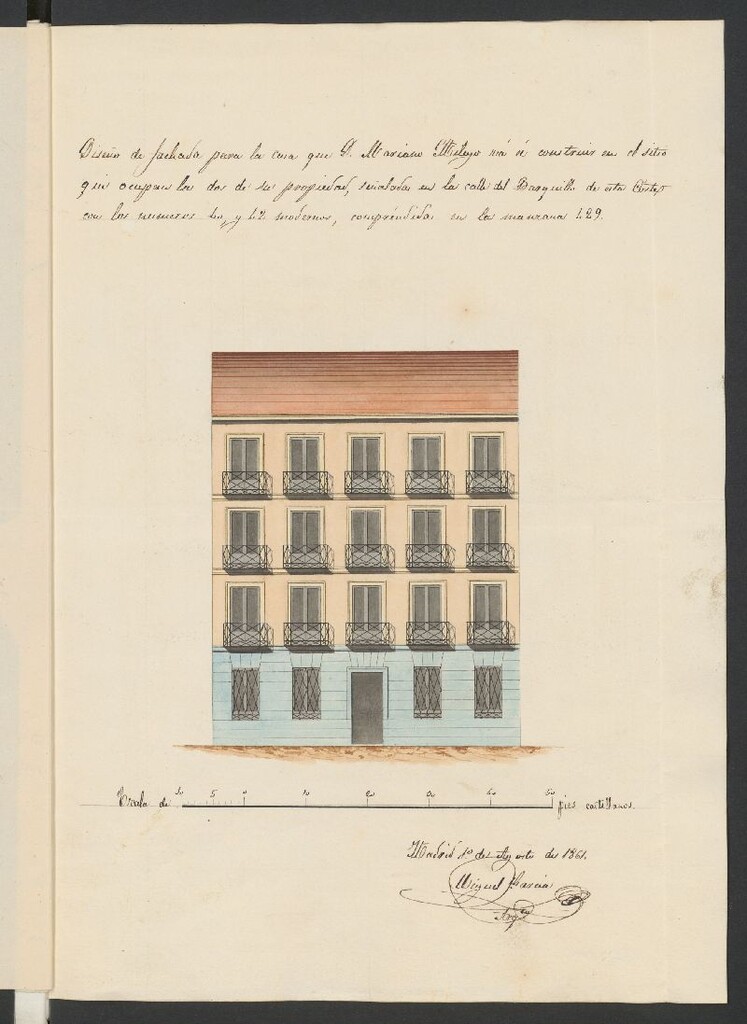 Diseño de fachada para la casa que D. Mariano vá á construir en el sitio
que ocupan las dos de su propiedad, señaladas en la calle del Barquillo de esta Corte
con los numeros 40, y 42 modernos, comprendida en la manzana 429.
Escala de 10 5 0 10 20 30 40 50 pies castellanos.
Madrid 1º de Agosto de 1861.
Miguel Garcia
Arqto